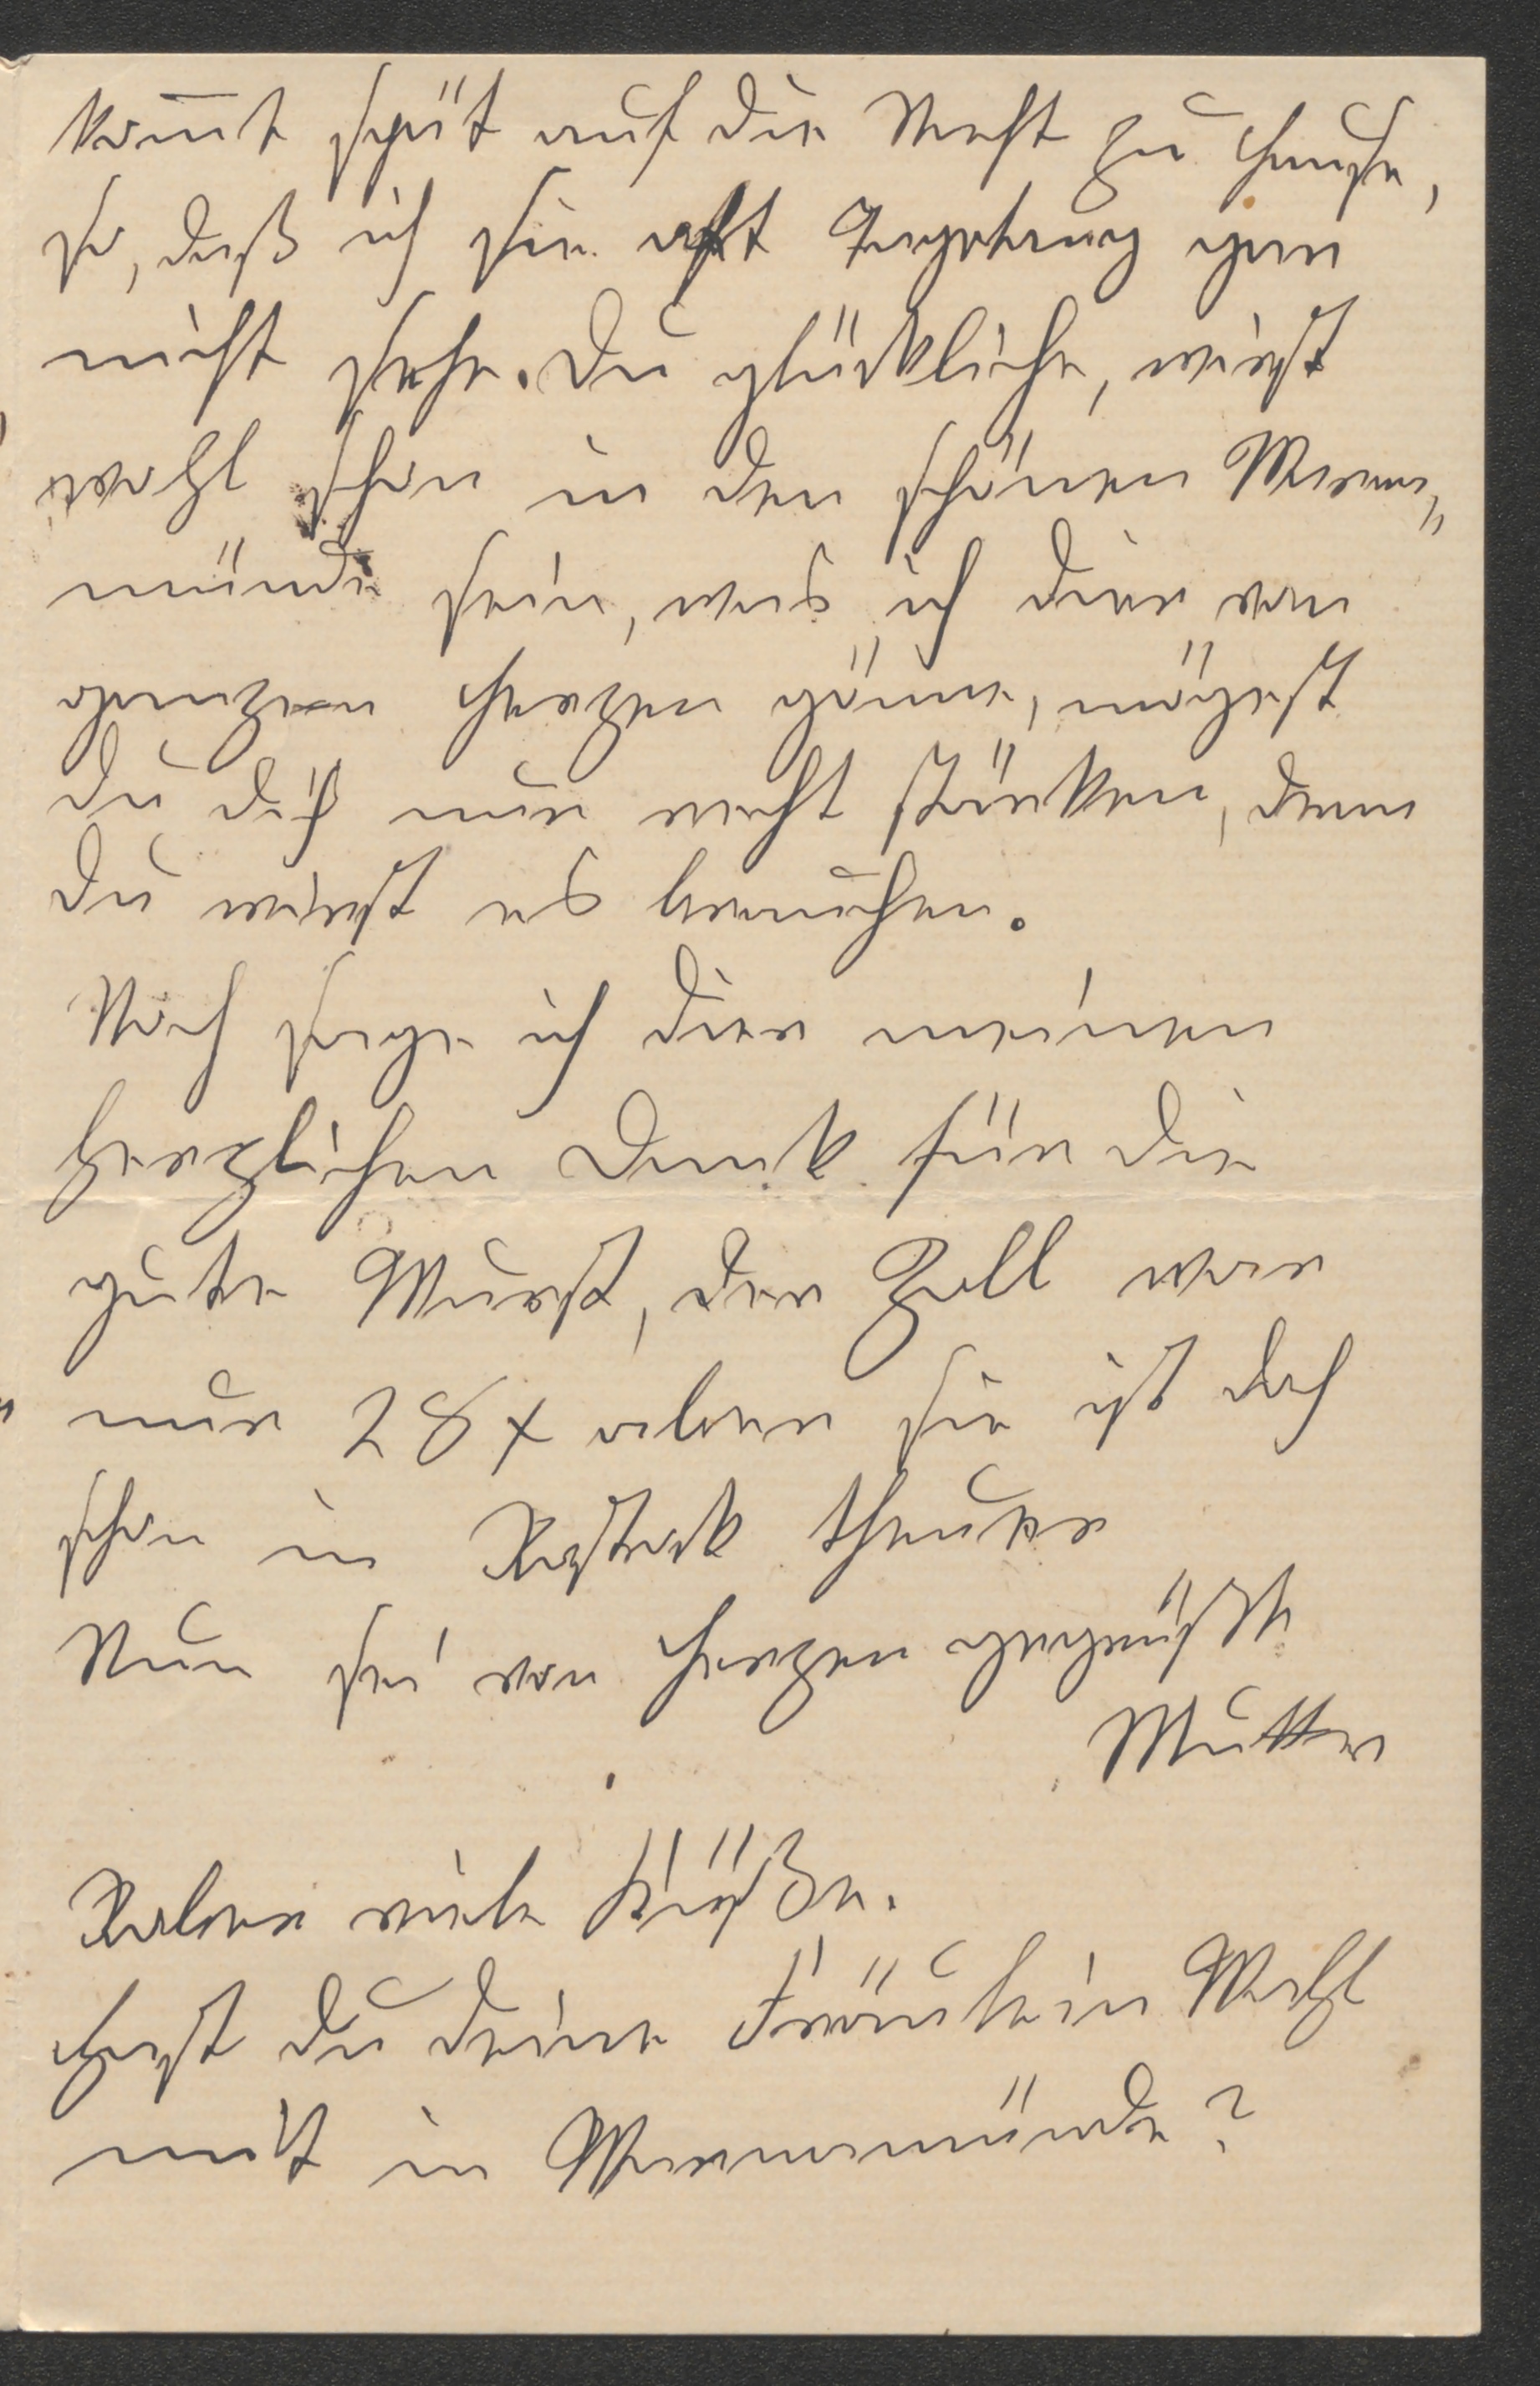 kom̅t spät auf die Nacht zu Hause,
so, daß ich sie oft Tagelang gar
nicht sehe. Du glückliche, wirst
wohl schon in den schönen Warne„
münde sein, was ich dier von
ganzen Herzen gönne, mögest
du dich nur recht stärken, denn
du wirst es brauchen.
Noch sage ich dier meinen
herzlichen Dank für die
gute Wurst, der Zoll war
nur 28 x aber sie ist doch
schon in Rostock theuer
Nun sei von Herzen gegrüßt
Mutter
Robert viele Küße.
Hast du deine Fräulein Wohl
mit in Warnemünde?